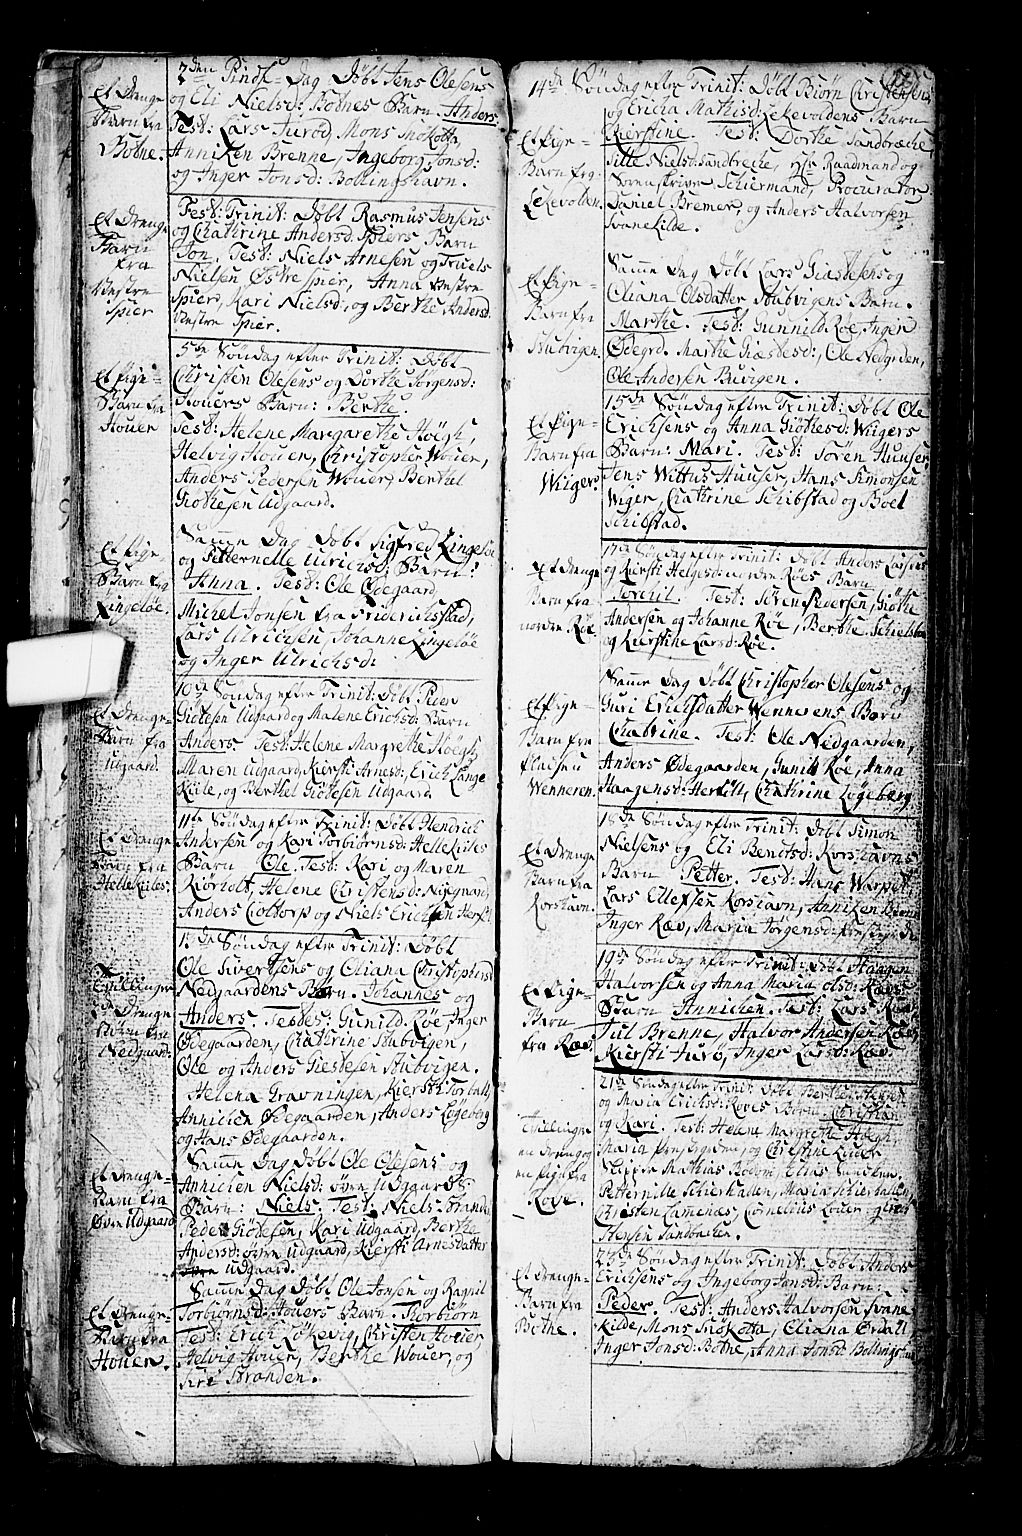 Et Drenge
Barn fra
Bothne.
2den Pindse-Dag Døbt Jens Olesens
og Eli Nielsd: Botnes Barn. Anders.
Test: Lars Jurød, Mons Snøkotta,
Anniken Brenne, Ingeborg Jonsd:
og Inger Jonsd: Bollingshavn.
Et Drenge
Barn
fra
Vestre
Spier
Fest: Trinit: Døbt Rasmus Jensens
og Chathrine Andersd. Spiers Barn
Jon. Test: Niels Arnesen og Truels
Nielsen Østre Spier, Anna Vestre
Spier, Kari Nielsd, og Berthe Andersd
Vestre Spier.
Et Pige-
Barn fra
Houer
5te Søndag efter Trinit: Døbt
Christen Olesens og Dorthe Jørgensd:
Houers Barn: Berthe.
Test: Helene Margarethe Høegh,
Helvig Houer, Christopher Wouer,
Anders Pedersen Wouer, Berthel
Giøthesen Udgaard.
Et Pige
Barn fra
Lingeløe.
Samme Dag Døbt Sigfred Lingeløe
og Petternelle Ulrichsd: Barn:
Anna. Test: Ole Ødegaard,
Michel Jonsen fra Friderichsstad,
Lars Ulrichsen, Johanne Lingeløe
og Inger Ulrichsd:
Et Drenge
Barn fra
Udgaard.
10de Søndag efter Trinit: Døbt Peder
Giøthesen Udgaard og Malene Erichsd: Barn
Anders. Test: Helene Margrethe Høegh,
Maren Udgaard, Kiersti Arnesd:, Erich Lange
Kiile, og Berthel Giøthesen Udgaard
Et Drenge
Barn fra
Hellekiiles:
11te Søndag efter Trinit: Døbt Hendrich
Andersen og Kari Torbiørnsd: Hellekiiles
Barn Ole. Test: Kari og Maren
Kiørholt, Helene Christensd: Nipegnard,
Anders Coltorp og Niels Erichsen Herføl.
Tvillinger
2de Drenge
Børn fra
Nedgaard:
12de Søndag efter Trinit: Døbt
Ole Sivertsens og Eliana Christophersd
Nedgaardens Børn. Johannes og
Anders. Testes: Gunild Røe, Inger
Ødegaarden, Chathrine Stubvigen,
Ole og Anders Giestesen Stubvigen.
Helena Gravningen, Kiersti Torbalt,
Annichen Ødegaarden, Anders Løgeberg
og Hans Ødegaarden.
Et Drenge-
Barn fra
Øvre Udgaard
Samme Dag Døbt Ole Olesens og
Annichen Nielsd: Øvre Udgaards
Barn: Niels. Test. Niels Brande
Peder Giøthesen, Kari Udgaard, Berthe
Andersd: Øvre Udgaard, Kiersti Arnesdatter
Udgaard.
Et Drenge-
Barn fra
Houen.
Samme Dag Døbt Ole Jonsen og Ragnil
Torbiørnsd: Houers Barn. Thorbiørn
Test: Erich Løkevig, Christen Houer,
Helvig Houer, Berthe Wouer, og
Siri Stranden.
Et Pige-
Barn fra
Lekevolden.
14de Søndag efter Trinit: Døbt Biørn Christensens
og Ericha Mathisd: Lekevoldens Barn
Kierstine. Test: Dorthe Sandbreche,
Sille Nielsd: Sandbreche, Hr: Raadmand og
Sorenskriver Schiermand, Procurator
Daniel Bremer, og Anders Halvorsen
Svanekilde.
Et Pige-
Barn fra
Stubvigen.
Samme Dag Døbt Lars Giestesens og
Eliana Olsdatter Stubvigens Barn.
Marthe. Test: Gunnild Røe, Inger
Ødegrd. Marthe Giestesd:, Ole Nedgrden,
Ole Andersen Buvigen.
Et Pige-
Barn fra
Wiiger.
15de Søndag efter Trinit: Døbt Ole
Erichsens og Anna Giøthesd: Wiigers
Barn: Mari. Test: Søren Huuser,
Jens Wittus Huuser, Hans Simonsen
Wiger, Chathrine Schibstad og Boel
Schibstad.
Et Drenge
Barn fra
Nordre Røe
17de Søndag efter Trinit: Døbt Anders Larsens
og Kiersti Helgesd: Nordre Røes Barn
Torchil. Test: Søren Pedersen, Giøthe
Andersen og Johanne Røe, Berthe Schielsboe
og Kierstine Larsd: Røe.
Et Pige-
Barn fra
Pladsen
Wenneren.
Samme Dag Døbt Christopher Olesens og
Guri Erichsdatter Wennerens Barn
Chatrine. Test: Ole Nedgaarden,
Anders Ødegaarden, Gunild Røe, Anna
Haagensd: Herføll, Chathrine Løgeberg.
Et Drenge
Barn fra
Korshavn.
18de Søndag efter Trinit: Døbt Simon
Nielsens og Eli Bentsd: Korshavns
Barn Petter. Test: Hans Warpet,
Lars Ellefsen Korshavn, Anniken Brenne
Inger Ræv, Maria Jørgensd:
Et Pige-
Barn
fra Ræv.
19de Søndag efter Trinit: Døbt Haagen
Halvorsen og Anna Maria Olsd: Rævs
Barn Annichen. Test: Lars Ræv,
Jul Brenne, Halvor Andersen Ræv,
Kiersti Jurø, Inger Larsd: Ræv.
Tvillinger
en Dreng og
en Pige fra
Rove.
21de Søndag efter Trinit: Døbt Berthel
og Maria Erichsd: Roves Børn. Christian
og Kari. Test: Helene Margrethe Høegh,
Maria Christine Louer
Mathias Rødom, Elias Sundsten,
Petternille Schierhallen, Maria Schierhallen,
Christen Lamenæs, Cornelius Louer og
Hensen Sandbachen.
Et Drenge-
Barn fra
Bothne.
23de Søndag efter Trinit: Døbt Anders
Erichsens og Ingeborg Jonsd: Barn:
Peder. Test: Anders Halvorsen Svane-
kilde, Mons Snøkotta, Eliana Ørdall,
Inger Jonsd: Botne, Anna Jonsd: Bollingshavn